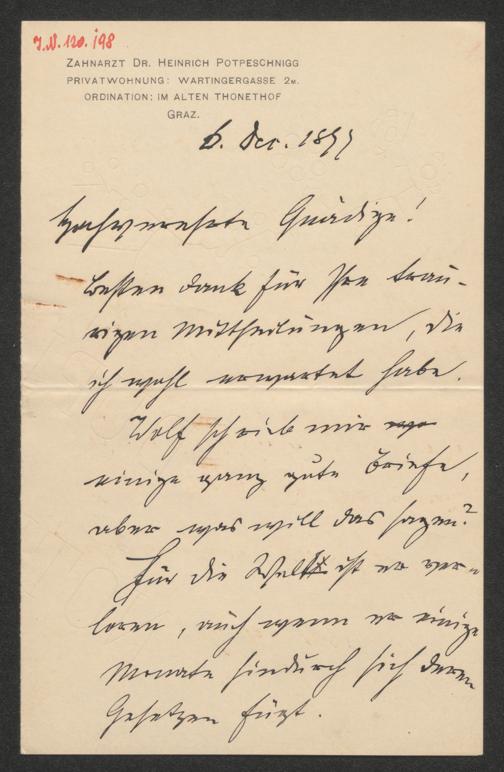 I.N. 120.198
ZAHNARZT DR. HEINRICH POTPESCHNIGG
PRIVATWOHNUNG: WARTINGERGASSE 2M.
ORDINATION: IM ALTEN THONETHOF
GRAZ.
6. Dec. 1897
Hochverehrte Gnädige!
Besten Dank für Ihre trau-
rigen Mittheilungen, die
ich wohl erwartet habe.
Wolf schrieb mir
einige ganz gute Briefe,
aber was will das sagen?
Für die Welt ist er ver-
loren, auch wenn er einige
Monate hindurch sich deren
Gesetzen fügt.